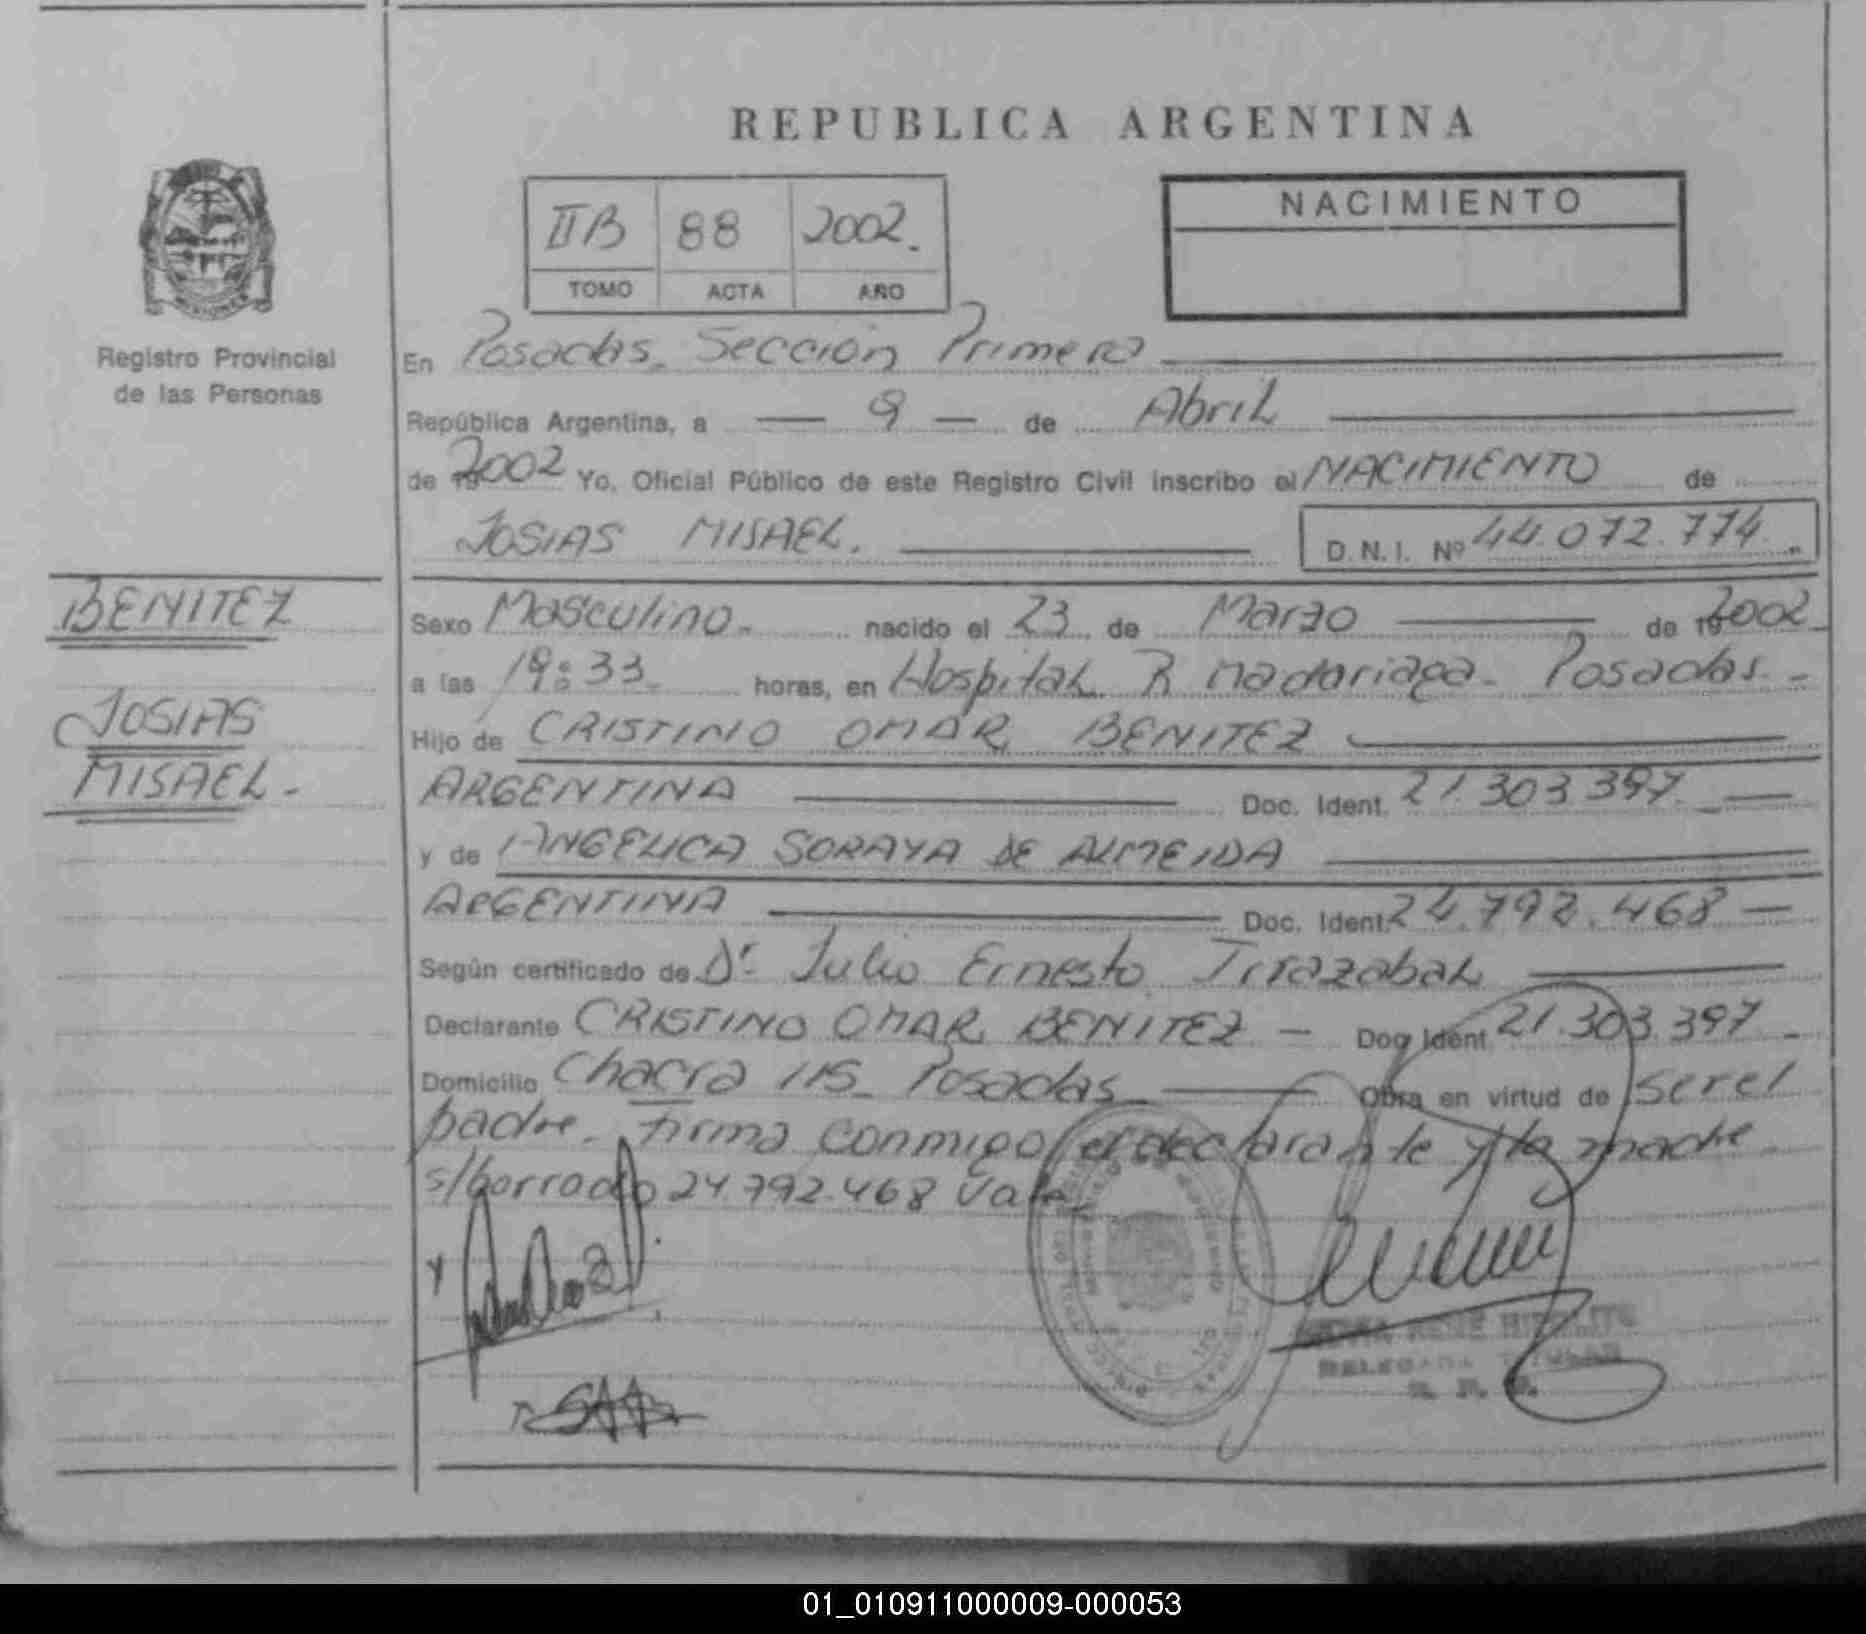 REPUBLICA ARGENTINA
IIB 88 2002.
TOMO ACTA AÑO
NACIMIENTO
Registro Provincial
de las Personas
En Posadas. Sección Primera
República Argentina, a — 9 — de Abril
de 2002 Yo, Oficial Público de este Registro Civil inscribo el NACIMIENTO de
JOSIAS MISAEL. D.N.I. Nº 44.072.774.
BENITEZ
JOSIAS
MISAEL.-
Sexo Masculino.- nacido el 23 de Marzo de 2002
a las 19:33 horas, en Hospital R Madariaga- Posadas.-
Hijo de CRISTINO OMAR BENITEZ
ARGENTINA Doc. Ident. 21.303.397.
y de ANGELICA SORAYA DE ALMEIDA
ARGENTINA Doc. Ident. 24.792.468 —
Según certificado de Dr. Julio Ernesto Irrazabal
Declarante CRISTINO OMAR BENITEZ — Doc Ident. 21.303.397 -
Domicilio Chacra 115 Posadas Obra en virtud de ser el
padre. Firma conmigo el declarante y la madre
s/borrado 24.792.468 Vale
DELEGADA TITULAR
01_010911000009-000053